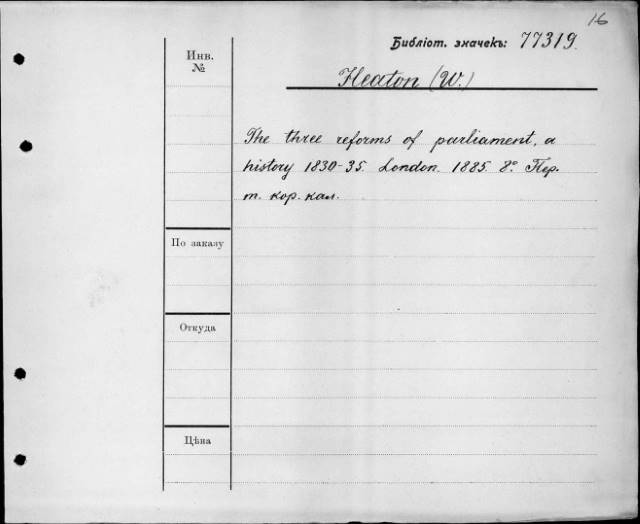 16
Библіот. значекъ: 77319.
Инв.
№
Heaton (W.)
The three reforms of parliament, a
history 1830-35. London. 1885. 8°. Пер.
т. кор. кал.
По заказу
Откуда
Цѣна